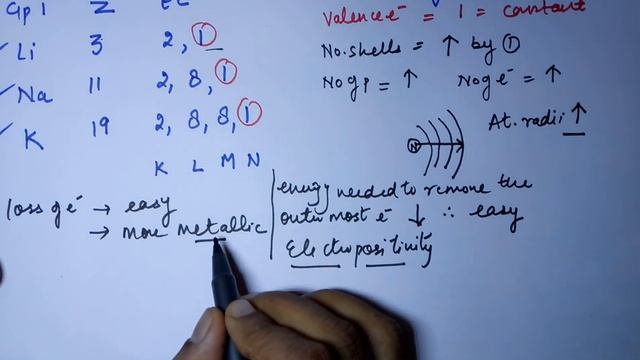 Gp 1 Z EC
Li 3 2, 1
Na 11 2, 8, 1
K 19 2, 8, 8, 1
K L M N
Valence e⁻ = 1 = constant
No. shells = ↑ by 1
No of p = ↑ No of e⁻ = ↑
At. radii ↑
N
loss of e⁻ → easy
→ more metallic
energy needed to remove the
outer most e⁻ ↓ ∴ easy
Electropositivity